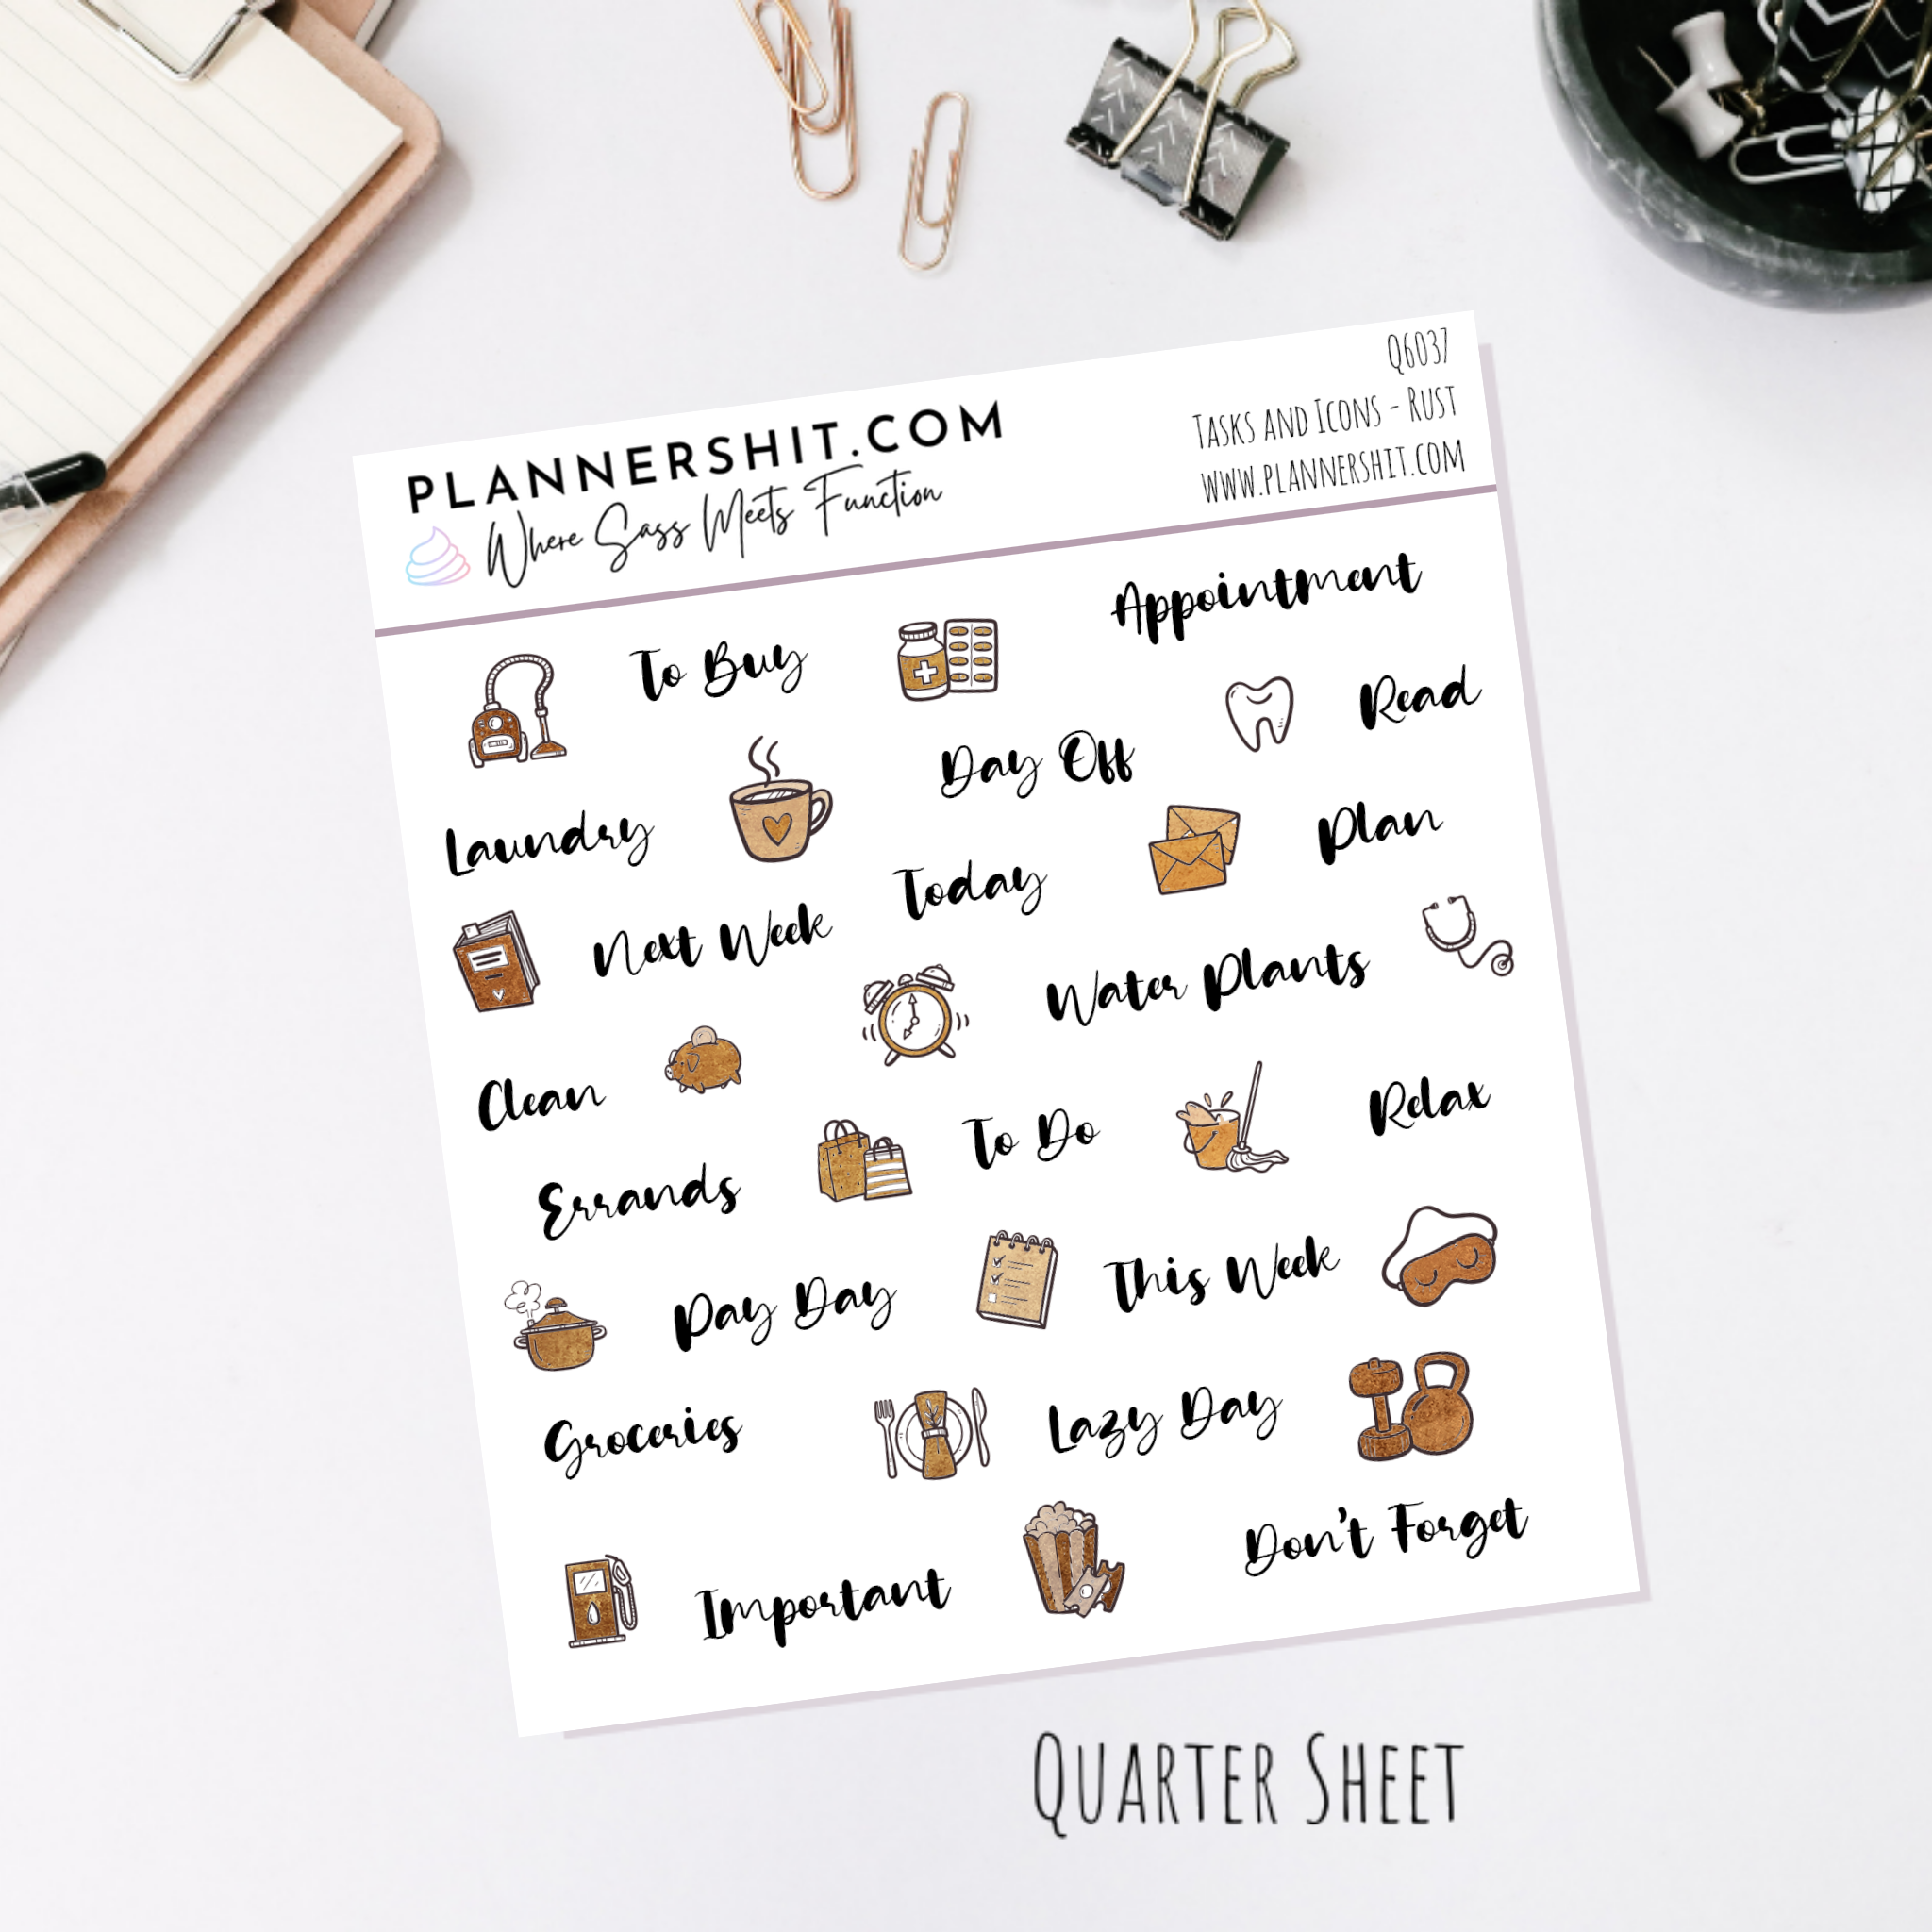 Q6037
PLANNERSHIT.COM
Tasks and Icons - Rust
Where Sass Meets Function
www.plannershit.com
Appointment
To Buy
Read
Day Off
Laundry
Plan
Today
Next Week
Water Plants
Clean
To Do
Relax
Errands
Pay Day
This Week
Groceries
Lazy Day
Don't Forget
Important
Quarter Sheet